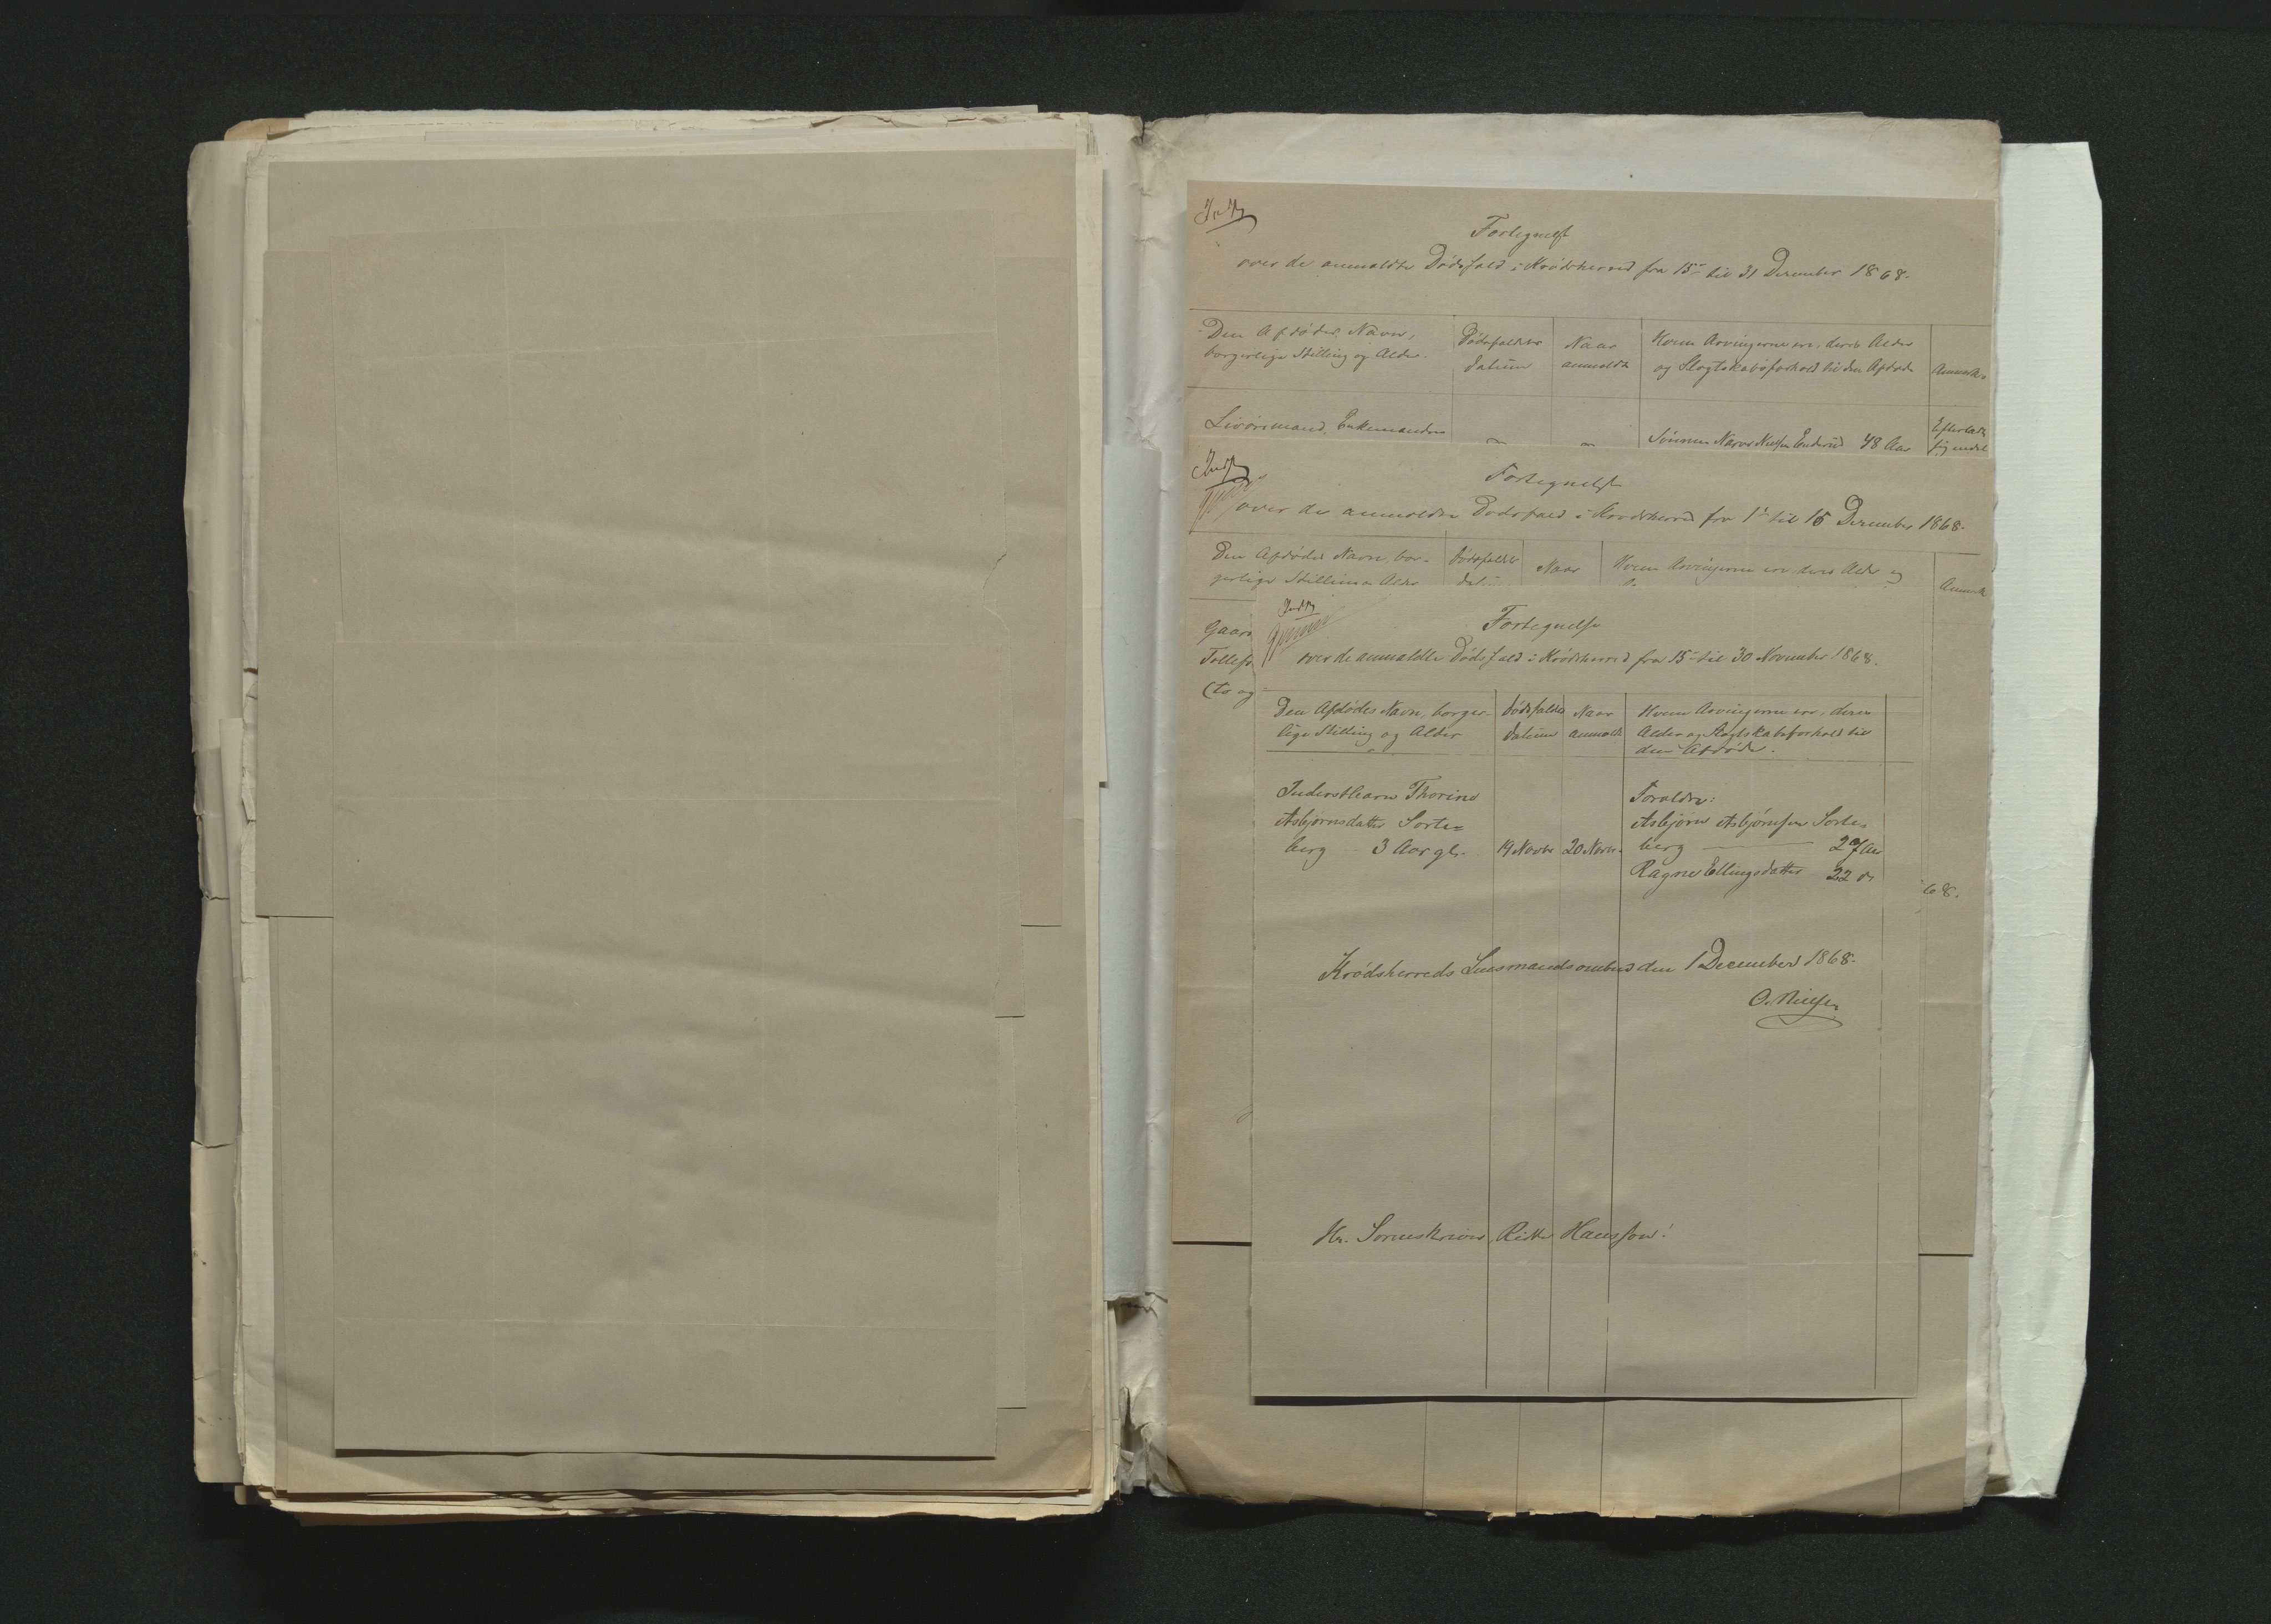 Fortegnelse
over de anmeldte Dødsfald i Krødsherred fra 15de til 31 December 1868.
Den Afdødes Navn,
borgerlige Stilling og Alder.
Dødsfaldets
Datum
Naar
anmeldt
Hvem Arvingerne ere, deres Alder
og Slægtskabsforhold til den Afdøde
Anmærk.
Livøremand, Enkemanden
Sønnen Narve Nielsen Enderud 48 Aar
Fortegnelse
over de anmeldte Dødsfald i Krødsherred fra 1ste til 15 December 1868.
Den Afdødes Navn, bor-
gerlige Stilling og Alder
Dødsfaldets
Naar
Hvem Arvingerne ere, deres Alder og
Anmærk
Gaar
Tollefs
(to og
68.
Fortegnelse
over de anmeldte Dødsfald i Krødsherred fra 15de til 30 November 1868.
Den Afdødes Navn, borger-
lige Stilling og Alder
Dødsfaldets
Datum
Naar
anmeldt
Hvem Arvingerne ere, deres
Alder og Slægtskabsforhold til
den Afdøde.
Inderstbarn Thorine
Asbjørnsdatter Sorte=
berg — 3 Aar gl.
19 Novbr
20 Novbr.
Forældre:
Asbjørn Asbjørnsen Sorte-
berg — 27 Aar
Ragne Ellingsdatter 22 dr
Krødsherreds Lensmandsombud den 1 December 1868.
O. Nielsen
Hr. Sorenskriver, Ridder Hansson!